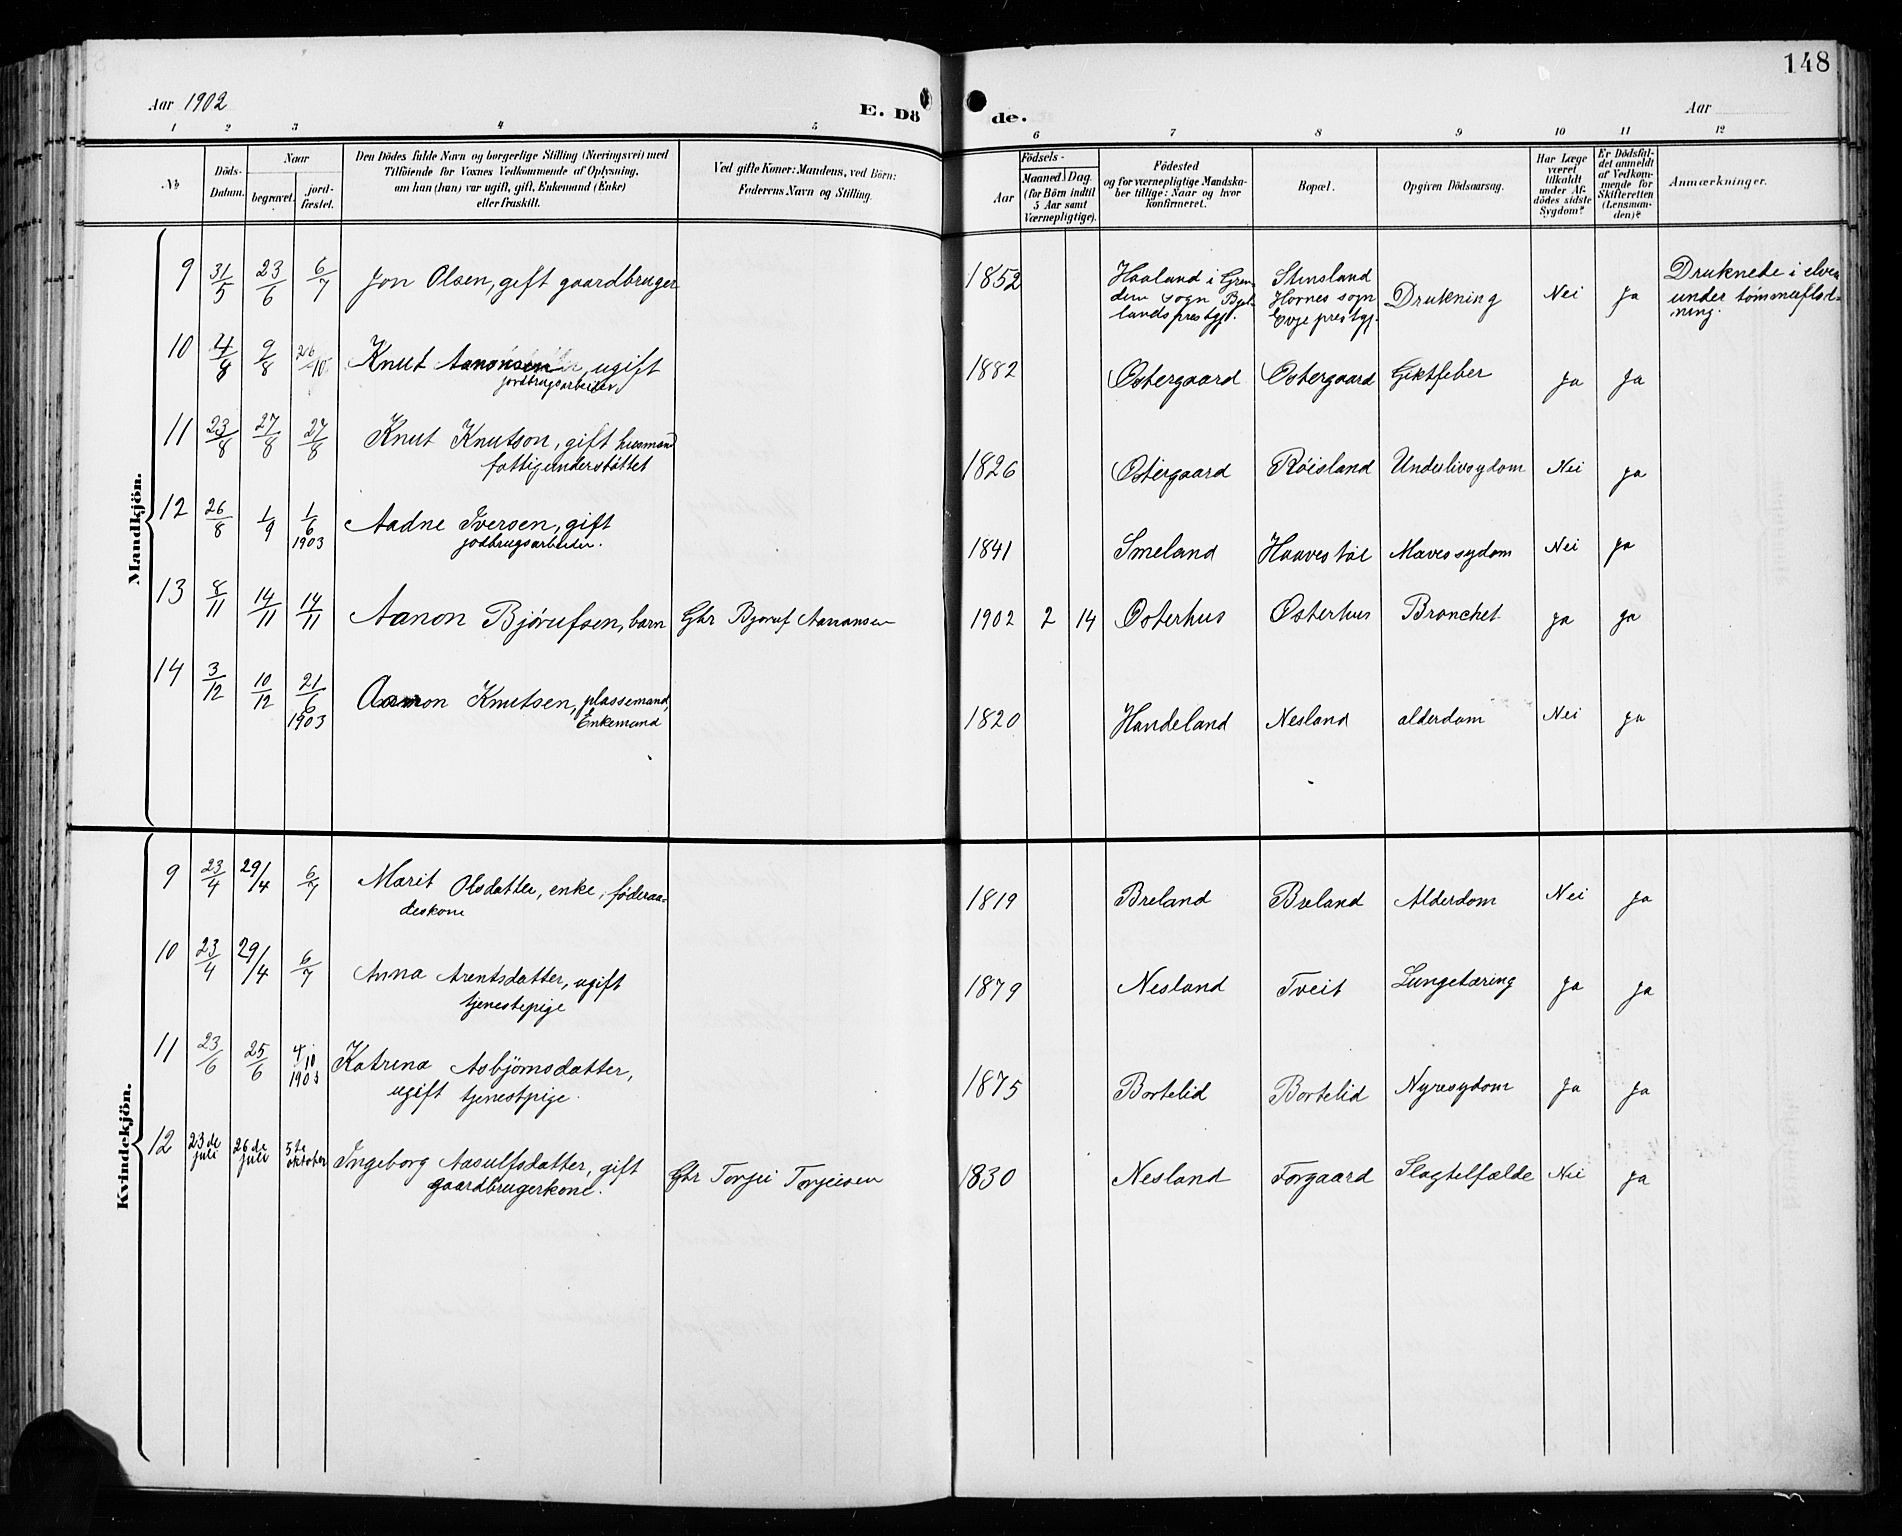 148
Aar 1902
E. Dö
de.
Aar
1 2 3 4 5 6 7 8 9 10 11 12
No
Döds-Datum.
Naar
begravet.
jord-fæstet.
Den Dödes fulde Navn og borgerlige Stilling (Næringsvei) med
Tilföiende for Voxnes Vedkommende af Oplysning,
om han (hun) var ugift, gift, Enkemand (Enke)
eller fraskilt.
Ved gifte Koner: Mandens, ved Börn:
Faderens Navn og Stilling.
Födsels-
Aar
Maaned. Dag.
(for Börn indtil
5 Aar samt
Værnepligtige).
Födested
og for værnepligtige Mandska-
ber tillige: Naar og hvor
konfirmeret.
Bopæl.
Opgiven Dödsaarsag.
Har Læge
været
tilkaldt
under Af-
dödes sidste
Sygdom?
Er Dödsfal-
det anmeldt
af Vedkom-
mende for
Skifteretten
(Lensman-
den)?
Anmærkninger.
Mandkjön.
9 31/5 23/6 6/7 Jon Olsen, gift gaardbruger 1852 Haaland i Grin- Stinsland Drukning Nei Ja Druknede i elven
dem sogn Byg- Hornes sogn under tømmerflød-
landsprestgj. Evje prestgj. ning.
10 4/8 9/8 26/10 Knut Aanonsen, ugift 1882 Østergaard Østergaard Giktfeber Ja Ja
jordbrugsarbeider
11 23/8 27/8 27/8 Knut Knutson, gift husmand 1826 Østergaard Røisland Underlivsydom Nei Ja
fattigunderstøttet
12 26/8 1/9 1/6 1903 Aadne Iversen, gift 1841 Smeland Haavestøl Mavessydom Nei Ja
jodbrugsarbeider.
13 8/11 14/11 14/11 Aanon Bjørufsen, barn Gbr Bjoruf Aanansen 1902 2 14 Østerhus Østerhus Bronchet Ja Ja
14 3/12 10/12 21/6 1903 Aanon Knutsen, plassemand, 1820 Handeland Nesland alderdom Nei Ja
Enkemand
Kvindekjön.
9 23/4 29/4 6/7 Marit Olsdatter, enke, føderaa- 1819 Breland Breland Alderdom Nei Ja
deskone
10 23/4 29/4 6/7 Anna Arentsdatter, ugift 1879 Nesland Tveit Lungetæring Ja Ja
tjenestepige
11 23/6 25/6 4/10 1903 Katrina Asbjørnsdatter, 1875 Bortelid Bortelid Nyresydom Ja Ja
ugift tjenestpige.
12 23de juli 26de juli 5te oktober Ingeborg Aasulfsdatter, gift Gbr Torjei Torjeisen 1830 Nesland Torgaard Slagtelfælde Nei Ja
gaardbrugerkone.